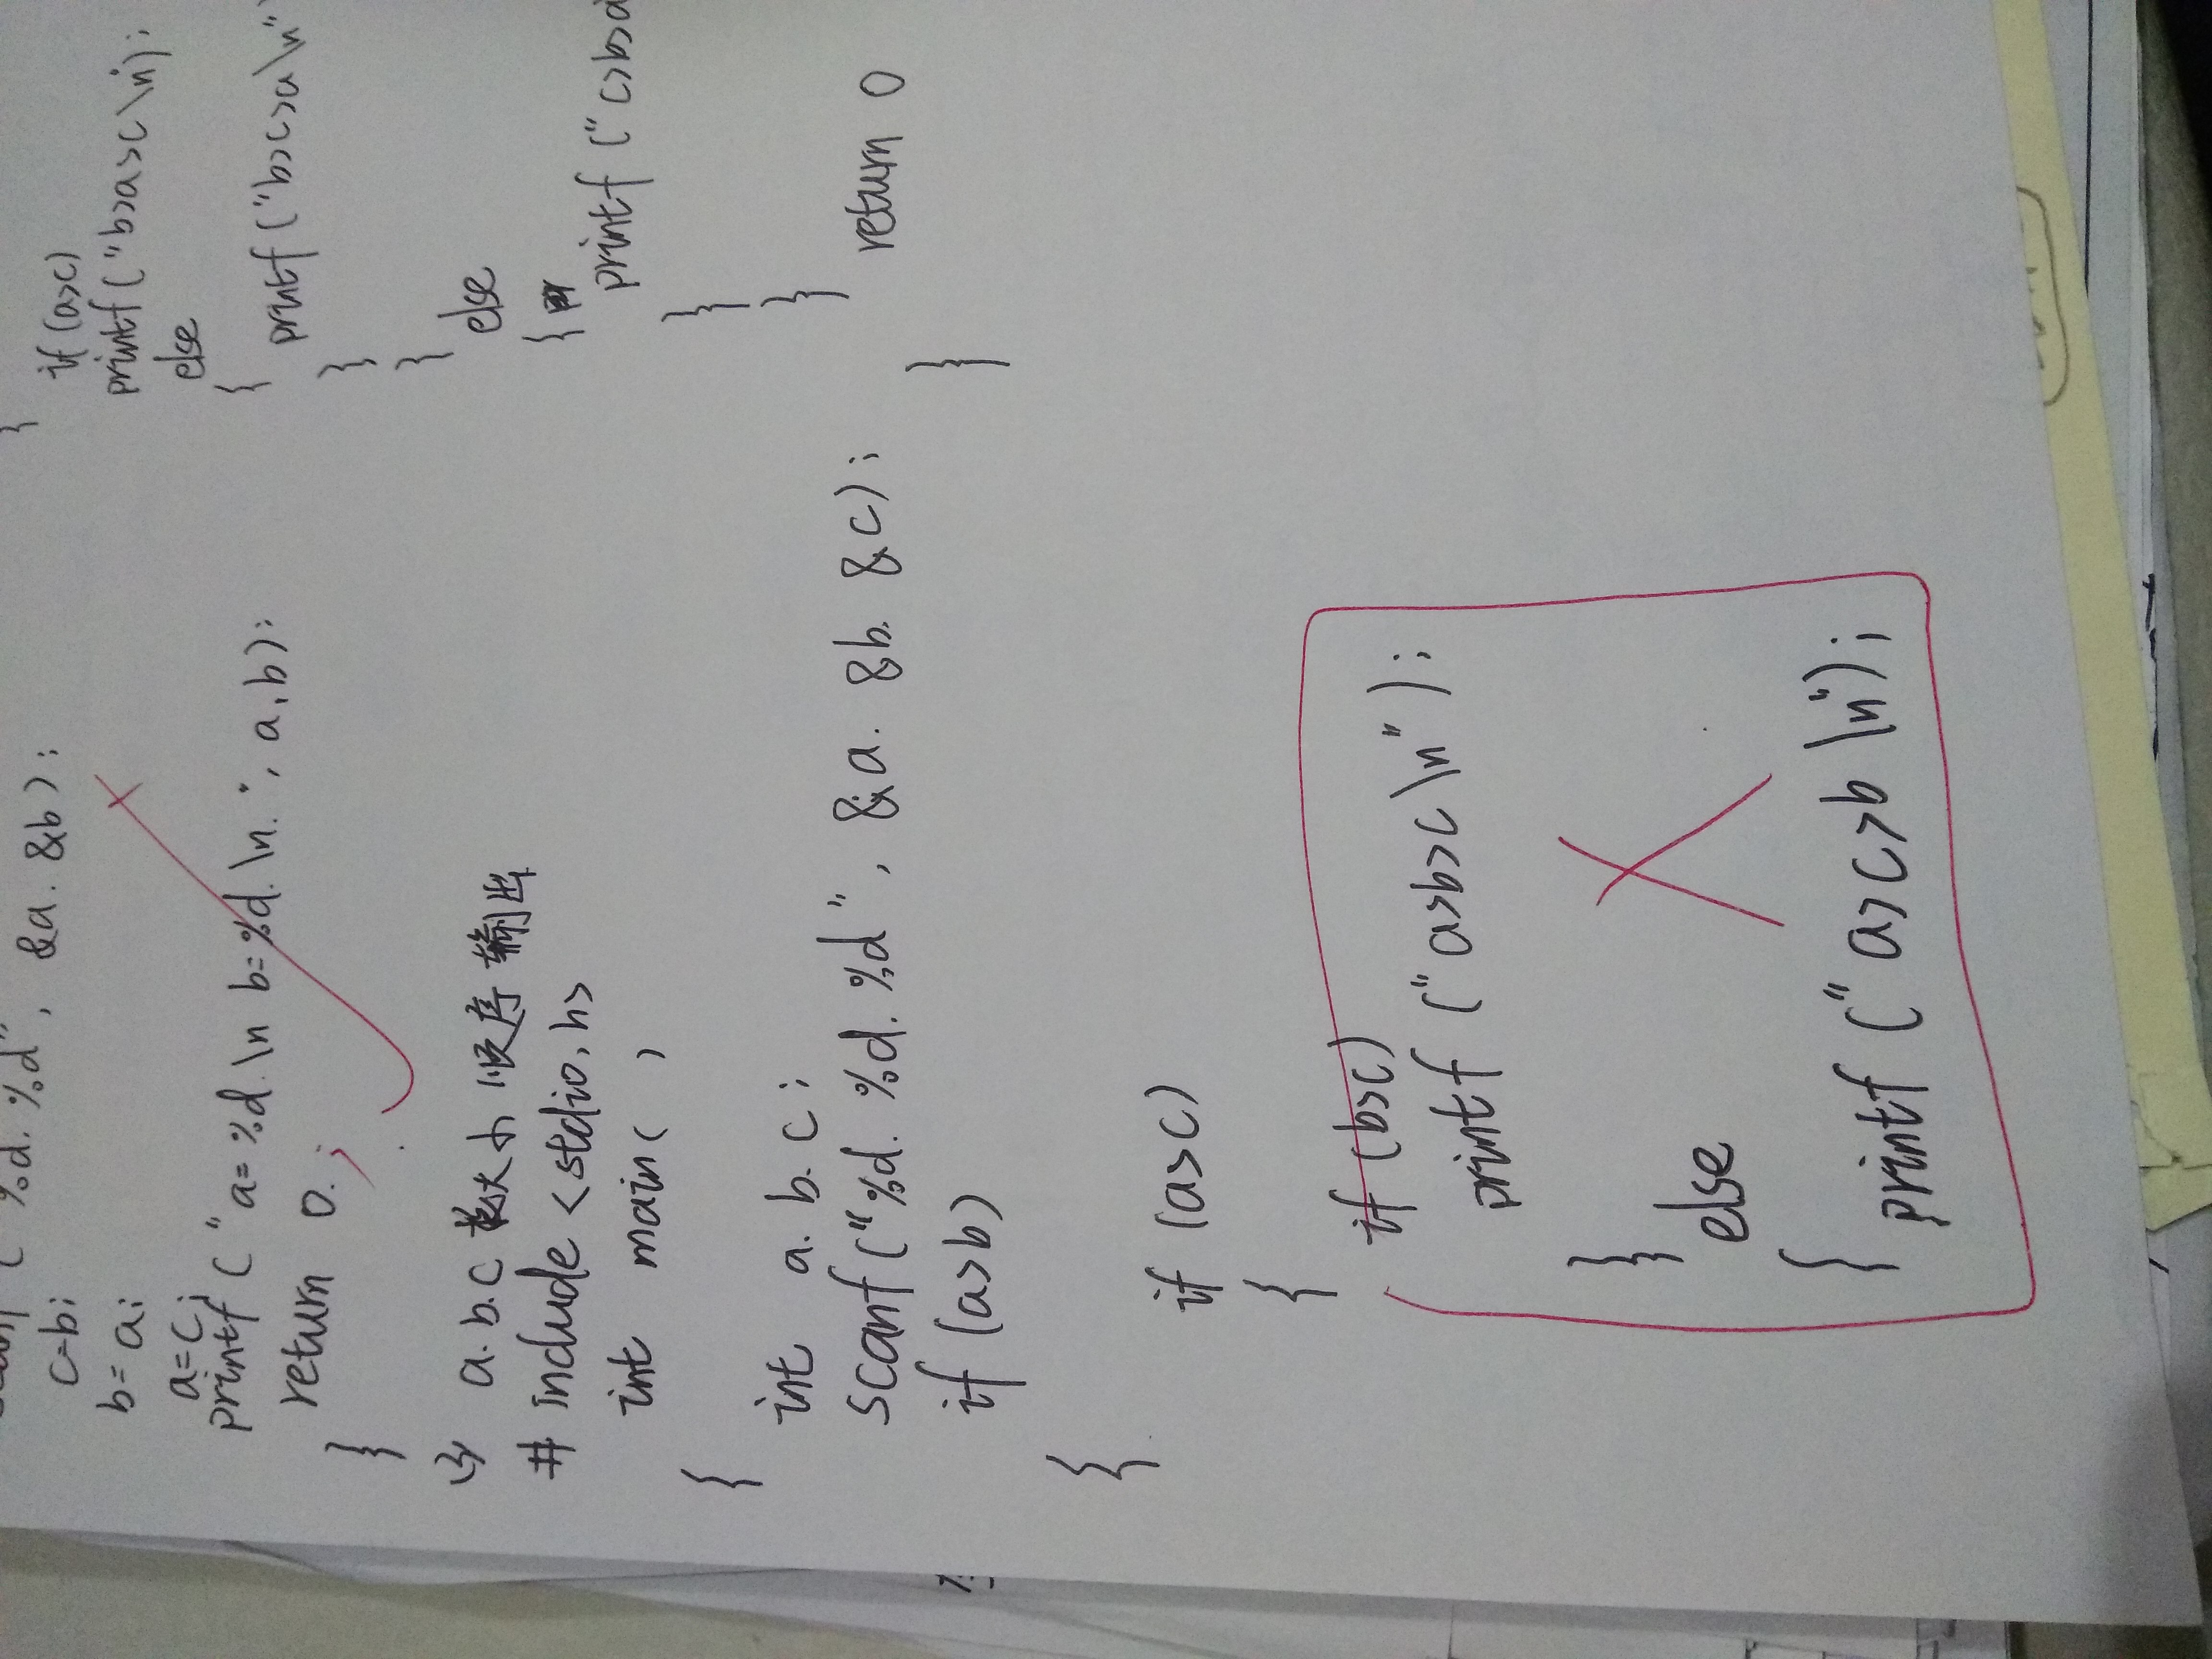 scanf ( "%d. %d", &a. &b);
c=b;
b= a;
a=c;
printf ( "a= %d.\n b=%d.\n.", a,b);
return 0.;
}
(3) a.b.c 按大小 顺序 输出
# include <stdio.h>
int main( )
{
int a. b. c ;
scanf ("%d. %d. %d", &a. &b. &c) ;
if (a>b)
{
if (a>c)
{
if (b>c)
printf ("a>b>c \n" ) ;
}
else
{
printf (" a>c>b \n") ;
{
if (a>c)
printf ("b>a>c \n");
else
{
printf ("b>c>a \n"
}
}
else
{
printf ("c>b>a
}
}
return 0
}